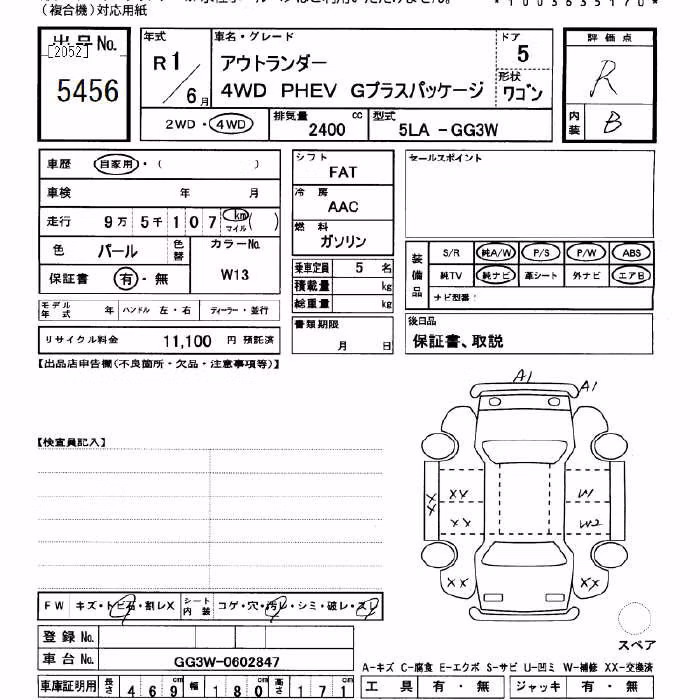 （複合機）対応用紙
*1003635170*
出品No.
[2052]
5456
年式
R1/6月
車名・グレード
アウトランダー
4WD PHEV Gプラスパッケージ
ドア
5
形状
ワゴン
評価点
R
内装
B
2WD・4WD
排気量
2400 cc
型式
5LA -GG3W
車歴 自家用・（ ）
車検 年 月
走行 9万 5千 107 km マイル ( )
色 パール
色替
カラーNo.
W13
保証書 有・無
モデル年式 年
ハンドル 左・右
ディーラー・並行
リサイクル料金 11,100 円 預託済
シフト
FAT
冷房
AAC
燃料
ガソリン
乗車定員 5 名
積載量 kg
総重量 kg
書類期限
月 日
セールスポイント
装備品
S/R 純A/W P/S P/W ABS
純TV 純ナビ 革シート 外ナビ エアB
ナビ型番：
後日品
保証書、取説
【出品店申告欄（不良箇所・欠品・注意事項等）】
【検査員記入】
A1
A1
XX
XX
XX
XX
W1
W2
XX
XX
スペア
FW キズ・トビ石・割レX
シート内装 コゲ・穴・汚レ・シミ・破レ・スレ
登録No.
車台No. GG3W-0602847
車庫証明用 長さ 469cm 幅 180cm 高さ 171cm
A-キズ C-腐食 E-エクボ S-サビ U-凹ミ W-補修 XX-交換済
工具 有・無
ジャッキ 有・無